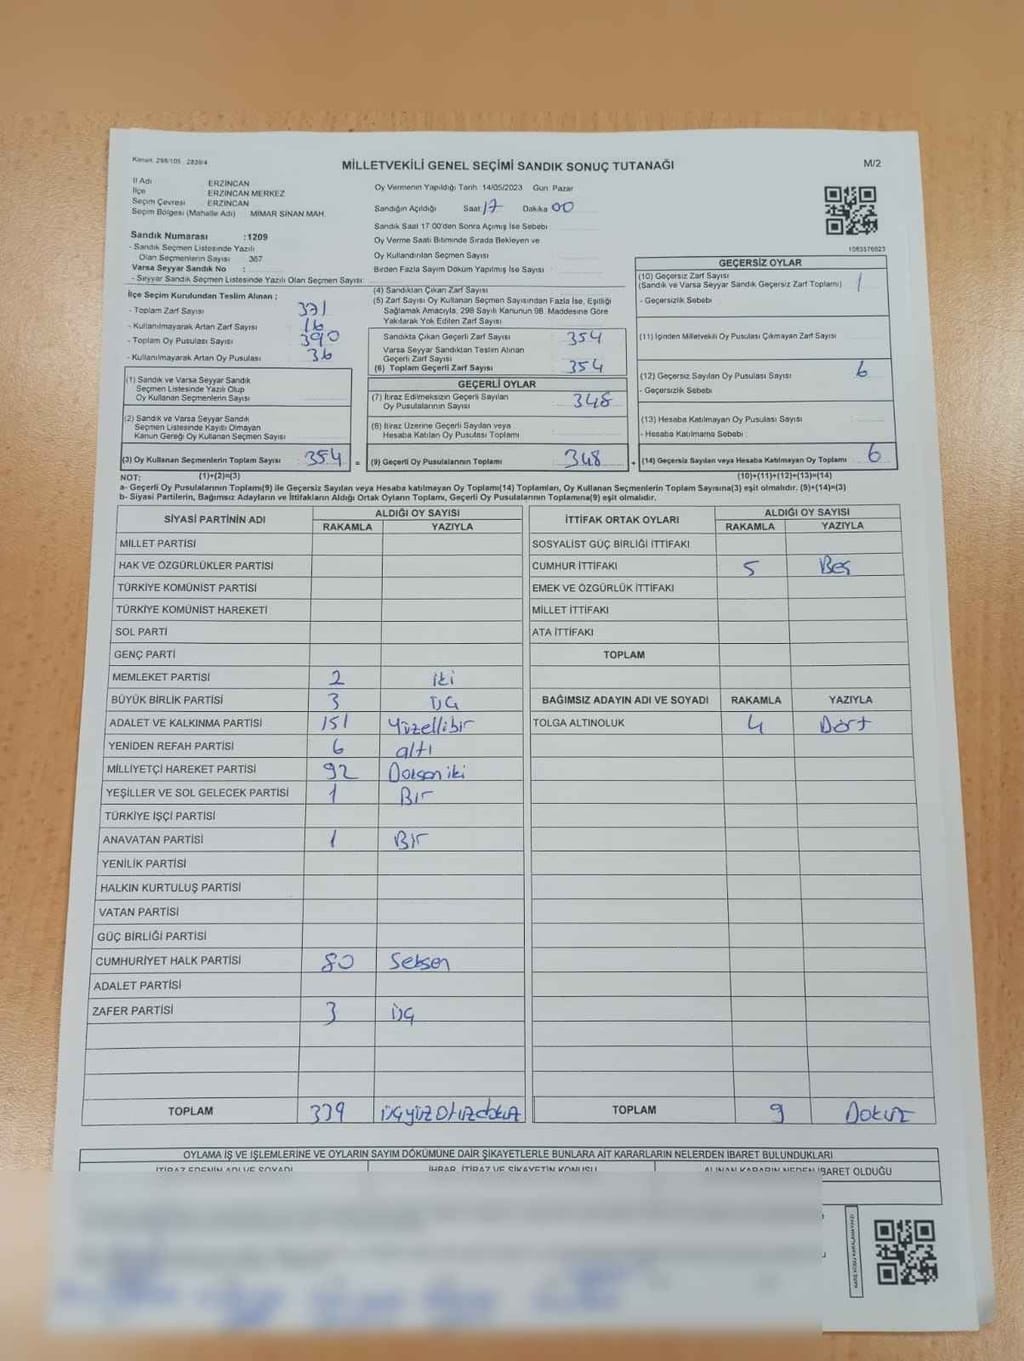 Kanun: 298/105 , 2839/4
MİLLETVEKİLİ GENEL SEÇİMİ SANDIK SONUÇ TUTANAĞI
M/2
İl Adı ERZİNCAN
İlçe ERZİNCAN MERKEZ
Seçim Çevresi ERZİNCAN
Seçim Bölgesi (Mahalle Adı) MİMAR SİNAN MAH.
Sandık Numarası :1209
- Sandık Seçmen Listesinde Yazılı
Olan Seçmenlerin Sayısı 367
Varsa Seyyar Sandık No :
- Seyyar Sandık Seçmen Listesinde Yazılı Olan Seçmen Sayısı:
Oy Vermenin Yapıldığı Tarih 14/05/2023 Gün Pazar
Sandığın Açıldığı Saat 17 Dakika 00
Sandık Saat 17:00'den Sonra Açımış İse Sebebi
Oy Verme Saati Bitiminde Sırada Bekleyen ve
Oy Kullandırılan Seçmen Sayısı
Birden Fazla Sayım Döküm Yapılmış İse Sayısı
1083576923
İlçe Seçim Kurulundan Teslim Alınan ;
- Toplam Zarf Sayısı 371
- Kullanılmayarak Artan Zarf Sayısı 16
- Toplam Oy Pusulası Sayısı 390
- Kullanılmayarak Artan Oy Pusulası 36
(1) Sandık ve Varsa Seyyar Sandık
Seçmen Listesinde Yazılı Olup
Oy Kullanan Seçmenlerin Sayısı
(2) Sandık ve Varsa Seyyar Sandık
Seçmen Listesinde Kayıtlı Olmayan
Kanun Gereği Oy Kullanan Seçmen Sayısı
(3) Oy Kullanan Seçmenlerin Toplam Sayısı 354 =
(4) Sandıktan Çıkan Zarf Sayısı
(5) Zarf Sayısı Oy Kullanan Seçmen Sayısından Fazla İse, Eşitliği
Sağlamak Amacıyla, 298 Sayılı Kanunun 98. Maddesine Göre
Yakılarak Yok Edilen Zarf Sayısı
Sandıkta Çıkan Geçerli Zarf Sayısı 354
Varsa Seyyar Sandıktan Teslim Alınan
Geçerli Zarf Sayısı
(6) Toplam Geçerli Zarf Sayısı 354
GEÇERLİ OYLAR
(7) İtiraz Edilmeksizin Geçerli Sayılan
Oy Pusulalarının Sayısı 348
(8) İtiraz Üzerine Geçerli Sayılan veya
Hesaba Katılan Oy Pusulası Toplamı
(9) Geçerli Oy Pusulalarının Toplamı 348 +
GEÇERSİZ OYLAR
(10) Geçersiz Zarf Sayısı
(Sandık ve Varsa Seyyar Sandık Geçersiz Zarf Toplamı) 1
- Geçersizlik Sebebi
(11) İçinden Milletvekili Oy Pusulası Çıkmayan Zarf Sayısı
(12) Geçersiz Sayılan Oy Pusulası Sayısı 6
- Geçersizlik Sebebi
(13) Hesaba Katılmayan Oy Pusulası Sayısı
- Hesaba Katılmama Sebebi :
(14) Geçersiz Sayılan veya Hesaba Katılmayan Oy Toplamı 6
NOT: (1)+(2)=(3) (10)+(11)+(12)+(13)=(14)
a- Geçerli Oy Pusulalarının Toplamı(9) ile Geçersiz Sayılan veya Hesaba katılmayan Oy Toplamı(14) Toplamları, Oy Kullanan Seçmenlerin Toplam Sayısına(3) eşit olmalıdır. (9)+(14)=(3)
b- Siyasi Partilerin, Bağımsız Adayların ve İttifakların Aldığı Ortak Oyların Toplamı, Geçerli Oy Pusulalarının Toplamına(9) eşit olmalıdır.
SİYASİ PARTİNİN ADI ALDIĞI OY SAYISI
RAKAMLA YAZIYLA
MİLLET PARTİSİ
HAK VE ÖZGÜRLÜKLER PARTİSİ
TÜRKİYE KOMÜNİST PARTİSİ
TÜRKİYE KOMÜNİST HAREKETİ
SOL PARTİ
GENÇ PARTİ
MEMLEKET PARTİSİ 2 iki
BÜYÜK BİRLİK PARTİSİ 3 üç
ADALET VE KALKINMA PARTİSİ 151 Yüzellibir
YENİDEN REFAH PARTİSİ 6 altı
MİLLİYETÇİ HAREKET PARTİSİ 92 Doksaniki
YEŞİLLER VE SOL GELECEK PARTİSİ 1 Bir
TÜRKİYE İŞÇİ PARTİSİ
ANAVATAN PARTİSİ 1 Bir
YENİLİK PARTİSİ
HALKIN KURTULUŞ PARTİSİ
VATAN PARTİSİ
GÜÇ BİRLİĞİ PARTİSİ
CUMHURİYET HALK PARTİSİ 80 Seksen
ADALET PARTİSİ
ZAFER PARTİSİ 3 üç
TOPLAM 339 üçyüzotuzdokuz
İTTİFAK ORTAK OYLARI ALDIĞI OY SAYISI
RAKAMLA YAZIYLA
SOSYALİST GÜÇ BİRLİĞİ İTTİFAKI
CUMHUR İTTİFAKI 5 Beş
EMEK VE ÖZGÜRLÜK İTTİFAKI
MİLLET İTTİFAKI
ATA İTTİFAKI
TOPLAM
BAĞIMSIZ ADAYIN ADI VE SOYADI RAKAMLA YAZIYLA
TOLGA ALTINOLUK 4 Dört
TOPLAM 9 Dokuz
OYLAMA İŞ VE İŞLEMLERİNE VE OYLARIN SAYIM DÖKÜMÜNE DAİR ŞİKAYETLERLE BUNLARA AİT KARARLARIN NELERDEN İBARET BULUNDUKLARI
İTİRAZ EDENİN ADI VE SOYADI İHBAR, İTİRAZ VE ŞİKAYETİN KONUSU ALINAN KARARIN NEDEN İBARET OLDUĞU